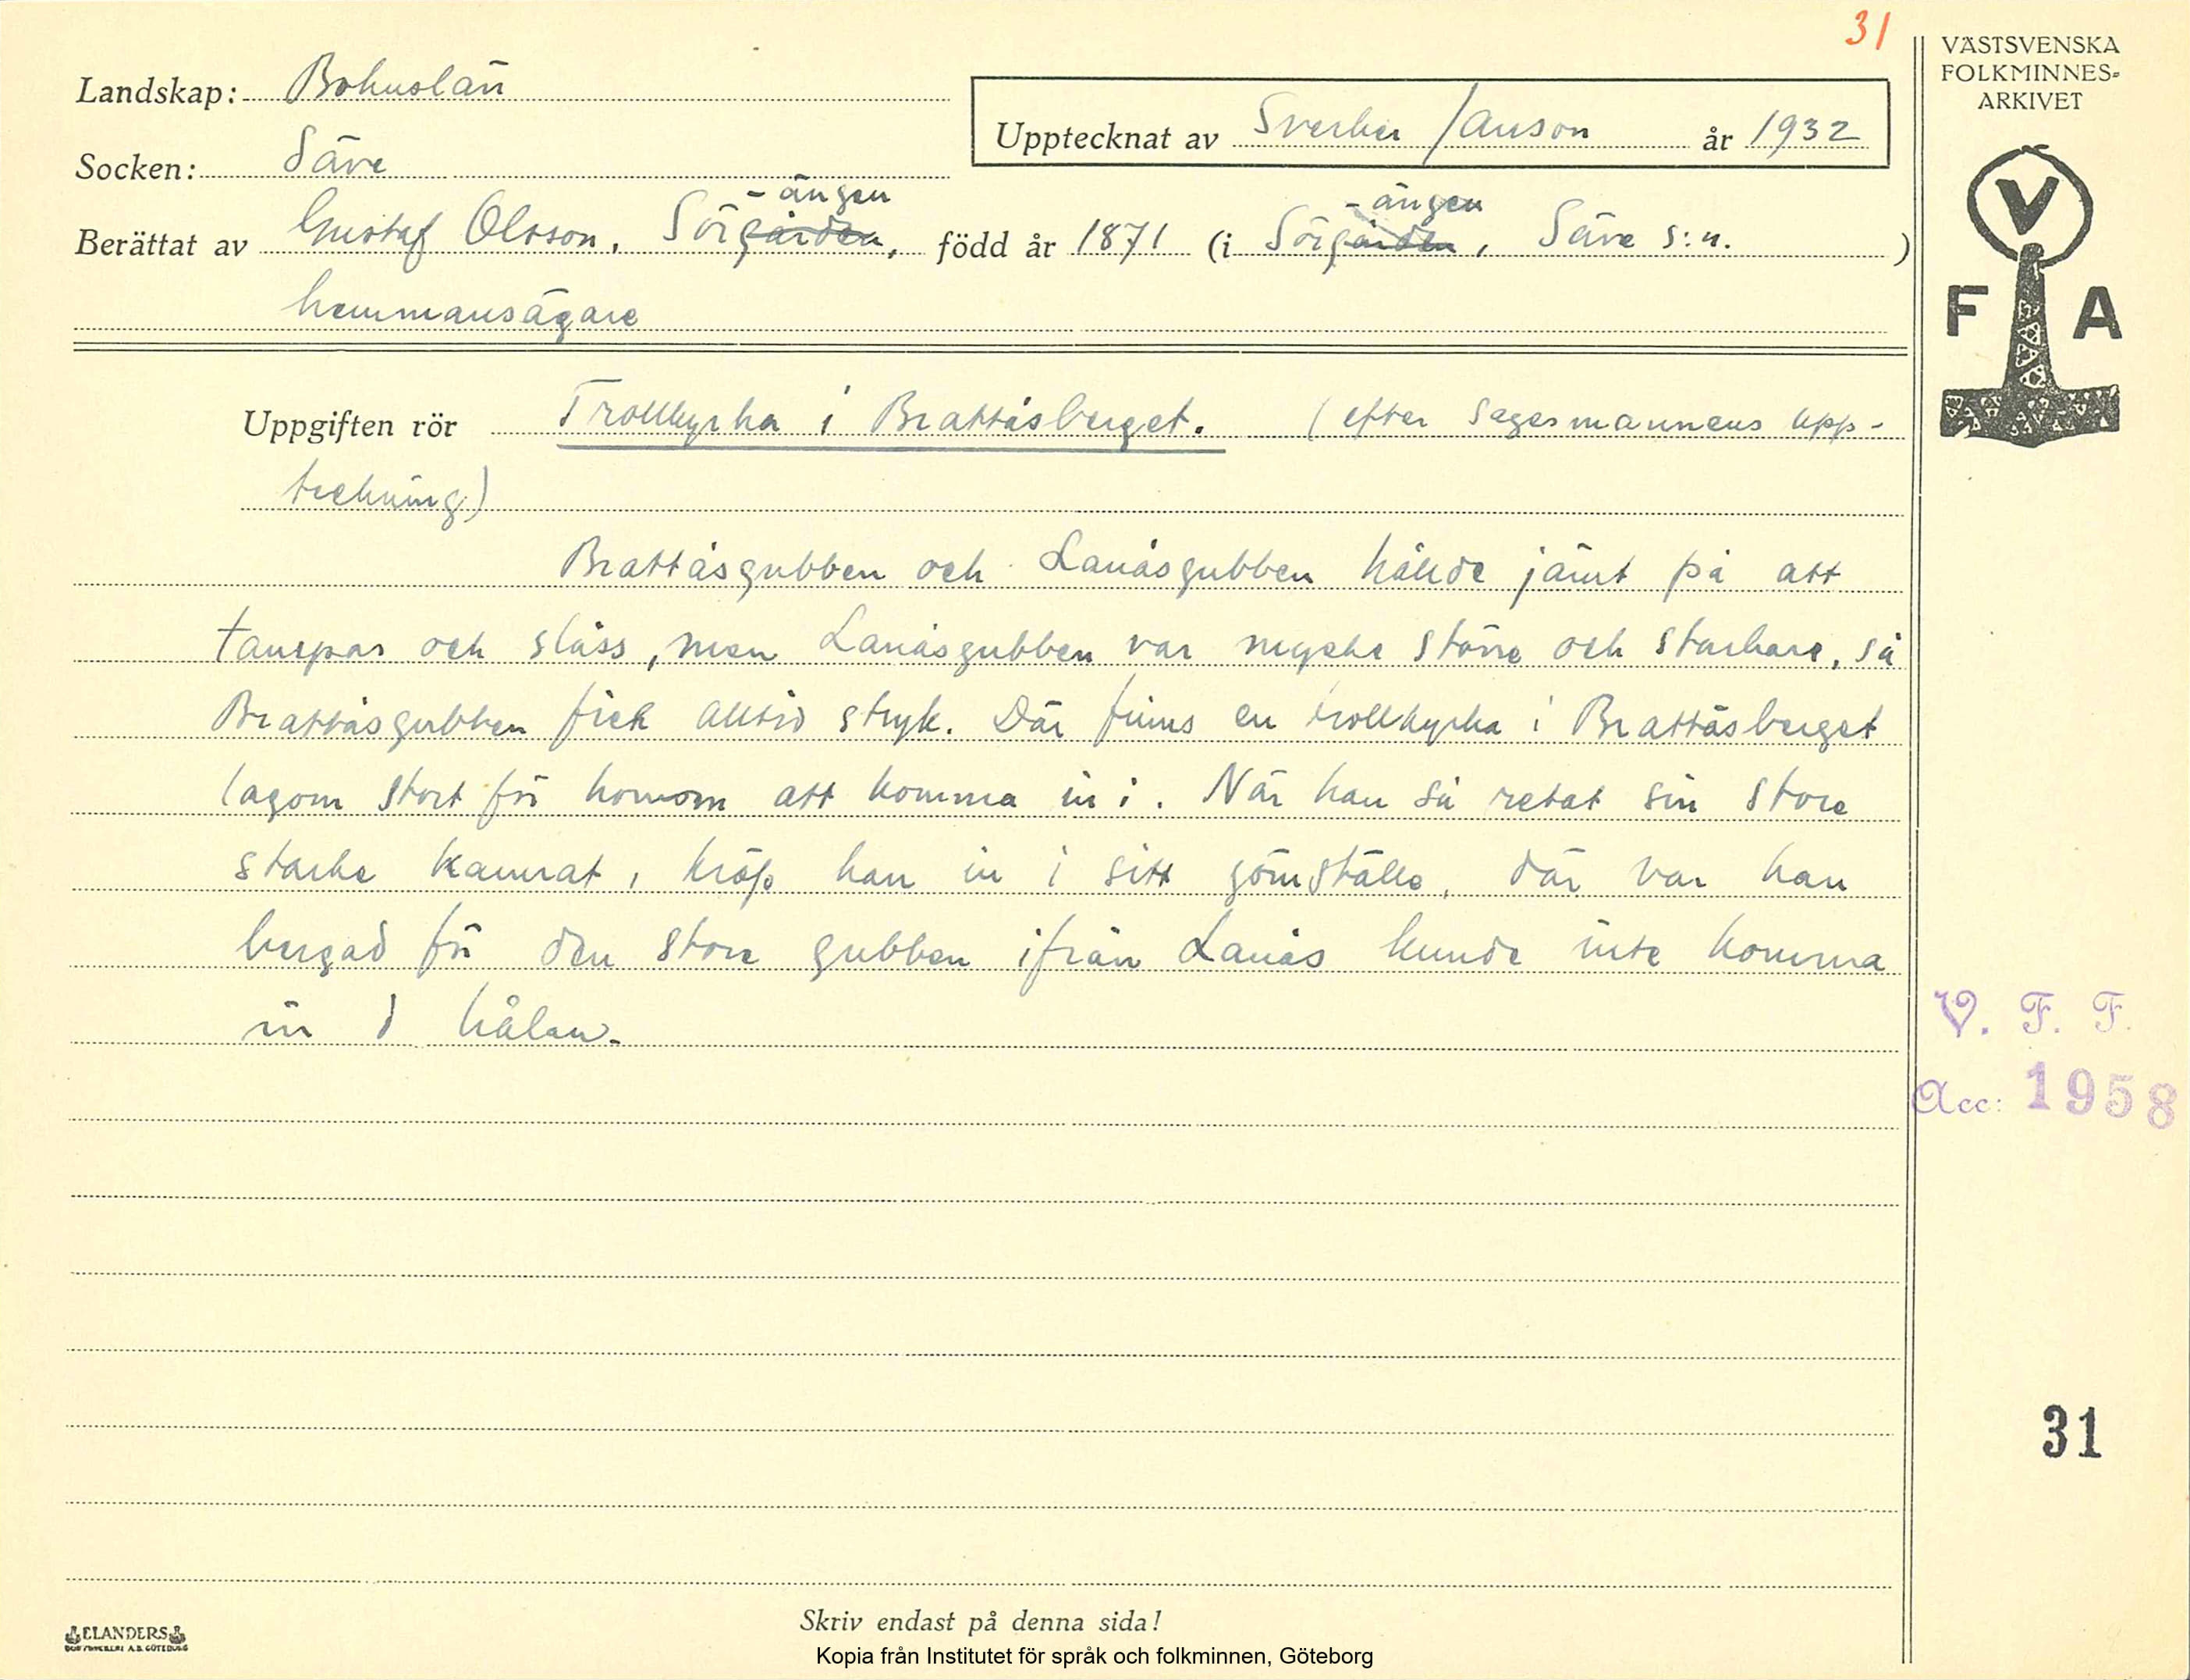 31
VÄSTSVENSKA
FOLKMINNES-
ARKIVET
Landskap: Bohuslän
Upptecknat av Sverker Janson år 1932
Socken: Säve
-ängen -ängen
Berättat av Gustaf Olsson, Sörgården, född år 1871 (i Sörgården, Säve s:n. )
hemmansägare
V
F A
Uppgiften rör Trollkyrka i Brattåsberget. (efter sagesmannens upp-
teckning)
Brattåsgubben och Lanåsgubben hållde jämt på att
tampas och slåss, men Lanåsgubben var mycke större och starkare, så
Brattåsgubben fick alltid stryk. Där finns en trollkyrka i Brattåsberget
lagom stort för honom att komma in i. När han så retat sin store
starke kamrat, kröp han in i sitt gömställe, där var han
bergad för den store gubben ifrån Lanås kunde inte komma
in i hålan.
V. F. F.
Acc: 1958
31
Skriv endast på denna sida!
ELANDERS
BOKTRYCKERI A.B. GÖTEBORG
Kopia från Institutet för språk och folkminnen, Göteborg